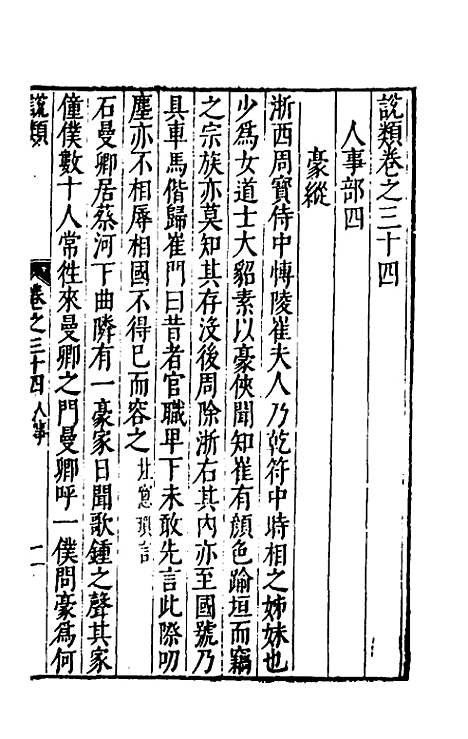 說類卷之三十四
人事部四
豪縱
浙西周寶侍中慱陵崔夫人乃乾符中時相之姊妹也
少爲女道士大貂素以豪俠聞知崔有顔色踰垣而竊
之宗族亦莫知其存沒後周除浙右其內亦至國號乃
具車馬偕歸崔門曰昔者官職早下未敢先言此際叨
塵亦不相辱相國不得已而容之北窓瑣言
石曼卿居蔡河下曲隣有一豪家日聞歌鍾之聲其家
僮僕數十人常徃來曼卿之門曼卿呼一僕問豪爲何
說類
卷之三十四人事
一